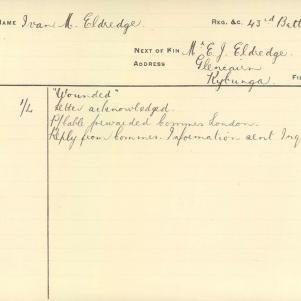 NAME Ivan M. Eldredge REG. &C. 43rd Batt
NEXT OF KIN Mr E. J. Eldredge
ADDRESS Glencairn
Kybunga. FI
"Wounded"
1/4 Letter acknowledged.
P/Cable forwarded Commrs London.
Reply from Commrs. Information sent Inq